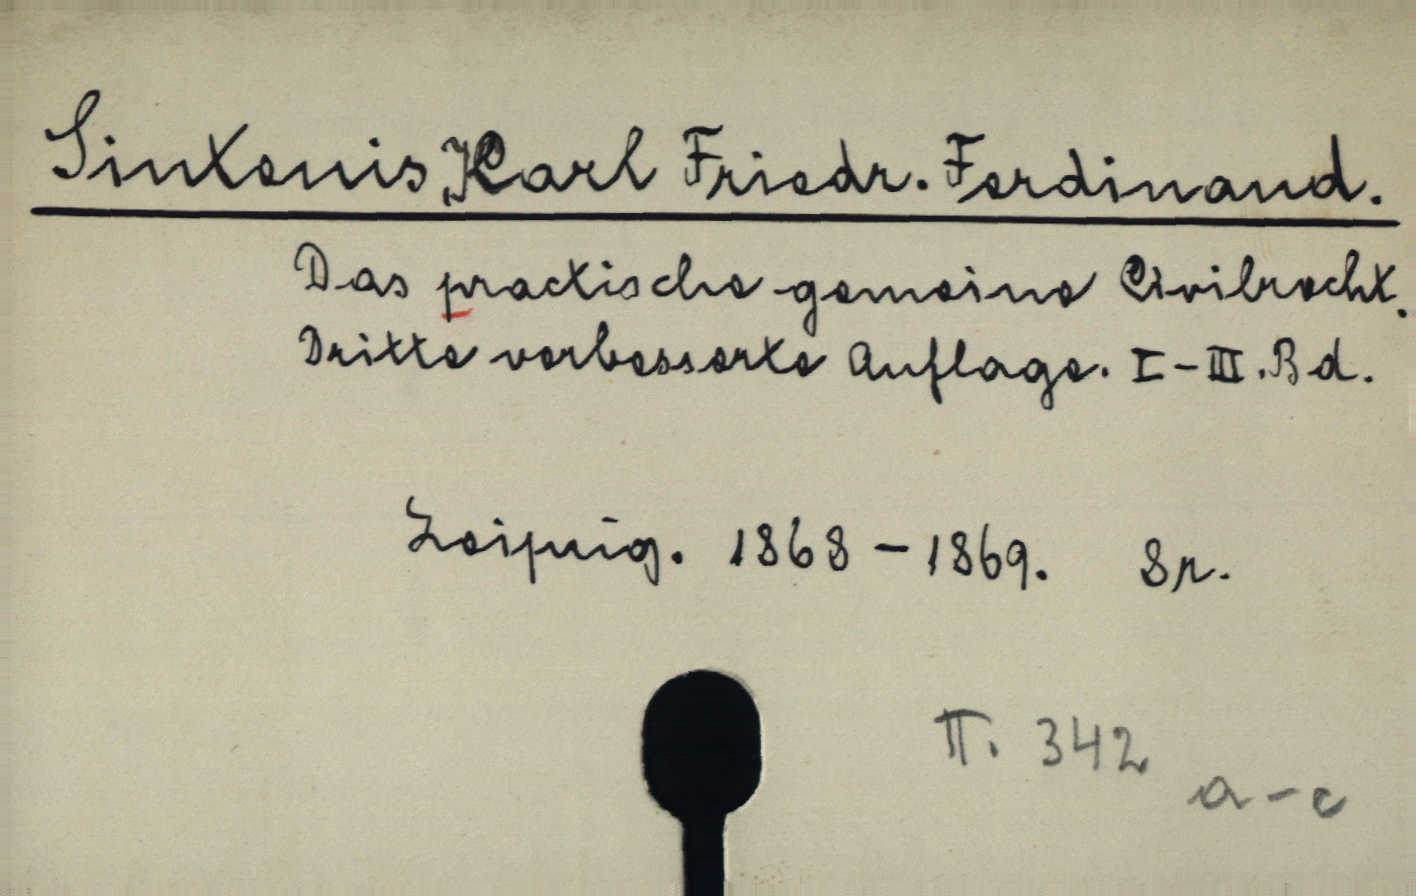 Sintenis Karl Friedr. Ferdinand.
Das practische gemeine Civilrecht.
Dritte verbesserte Auflage. I-III. Bd.
Leipzig. 1868-1869. 8r.
II. 342
a-c